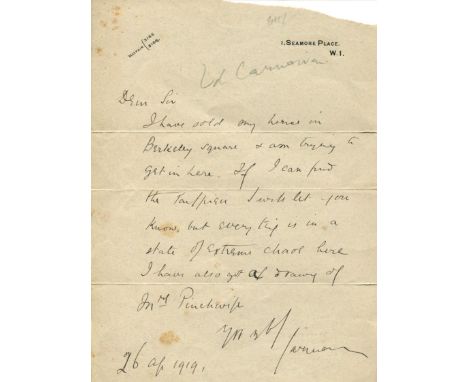 1, SEAMORE PLACE.
W.1.
MAYFAIR
Ld Carnarvon
Dear Sir
I have sold my house in
Berkeley Square & am trying to
get in here. If I can find
the I will let you
know, but everything is in a
state of extreme chaos here
I have also got a drawing of
Mrs Pinchwife
Carnarvon
26 Ap 1919.